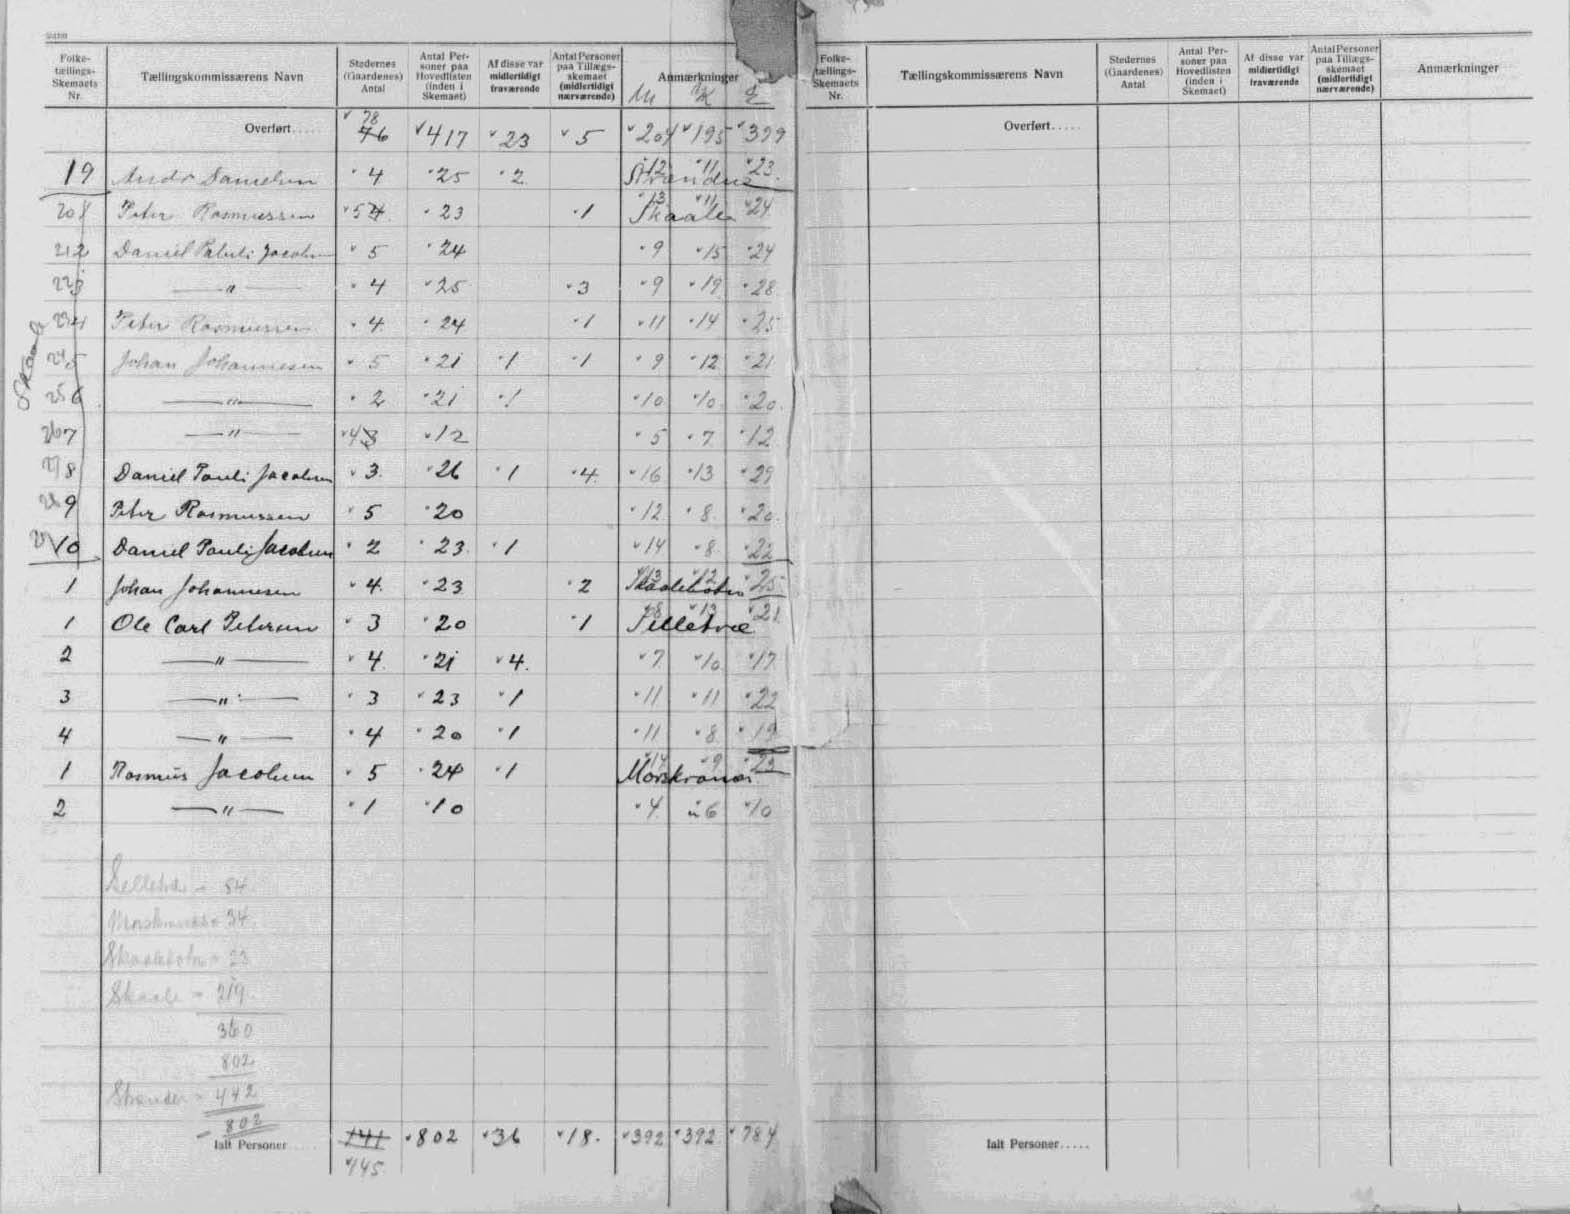 Folke-tællings-Skemaets Nr. Tællingskommissærens Navn Stedernes (Gaardenes) Antal Antal Personer paa Hovedlisten (inden i Skemaet) Af disse var midlertidigt fraværende Antal Personer paa Tillægsskemaet (midlertidigt nærværende) Anmærkninger
M K
Overført..... 78 76 417 23 5 204 195 399
19 Andr Danielsen 4 25 2 Strender 12 11 23
20 1 Peter Rasmussen 5 4 23 1 Skaale 13 11 24
21 2 Daniel Pauli Jacobsen 5 24 9 15 24
22 3 — " — 4 25 3 9 19 28
23 4 Peter Rasmussen 4 24 1 11 14 25
24 5 Johan Johannesen 5 21 1 1 9 12 21
25 6 — " — 2 21 1 10 10 20
26 7 — " — 4 3 12 5 7 12
27 8 Daniel Pauli Jacobsen 3 26 1 4 16 13 29
28 9 Peter Rasmussen 5 20 12 8 20
10 Daniel Pauli Jacobsen 2 23 1 14 8 22
Skaale
1 Johan Johannesen 4 23 2 Skaalebotn 13 12 25
1 Ole Carl Petersen 3 20 1 Selletræ 8 13 21
2 — " — 4 21 4 7 10 17
3 — " — 3 23 1 11 11 22
4 — " — 4 20 1 11 8 19
1 Rasmus Jacobsen 5 24 1 Morskranes 14 9 23
2 — " — 1 10 4 6 10
Selletræ = 84
Morskranes = 34
Skaalebotn = 23
Skaale = 219
360
802
Strender = 442
802
Ialt Personer..... 141 802 36 18 392 392 784
145
Folke-tællings-Skemaets Nr. Tællingskommissærens Navn Stedernes (Gaardenes) Antal Antal Personer paa Hovedlisten (inden i Skemaet) Af disse var midlertidigt fraværende Antal Personer paa Tillægsskemaet (midlertidigt nærværende) Anmærkninger
Overført.....
Ialt Personer.....